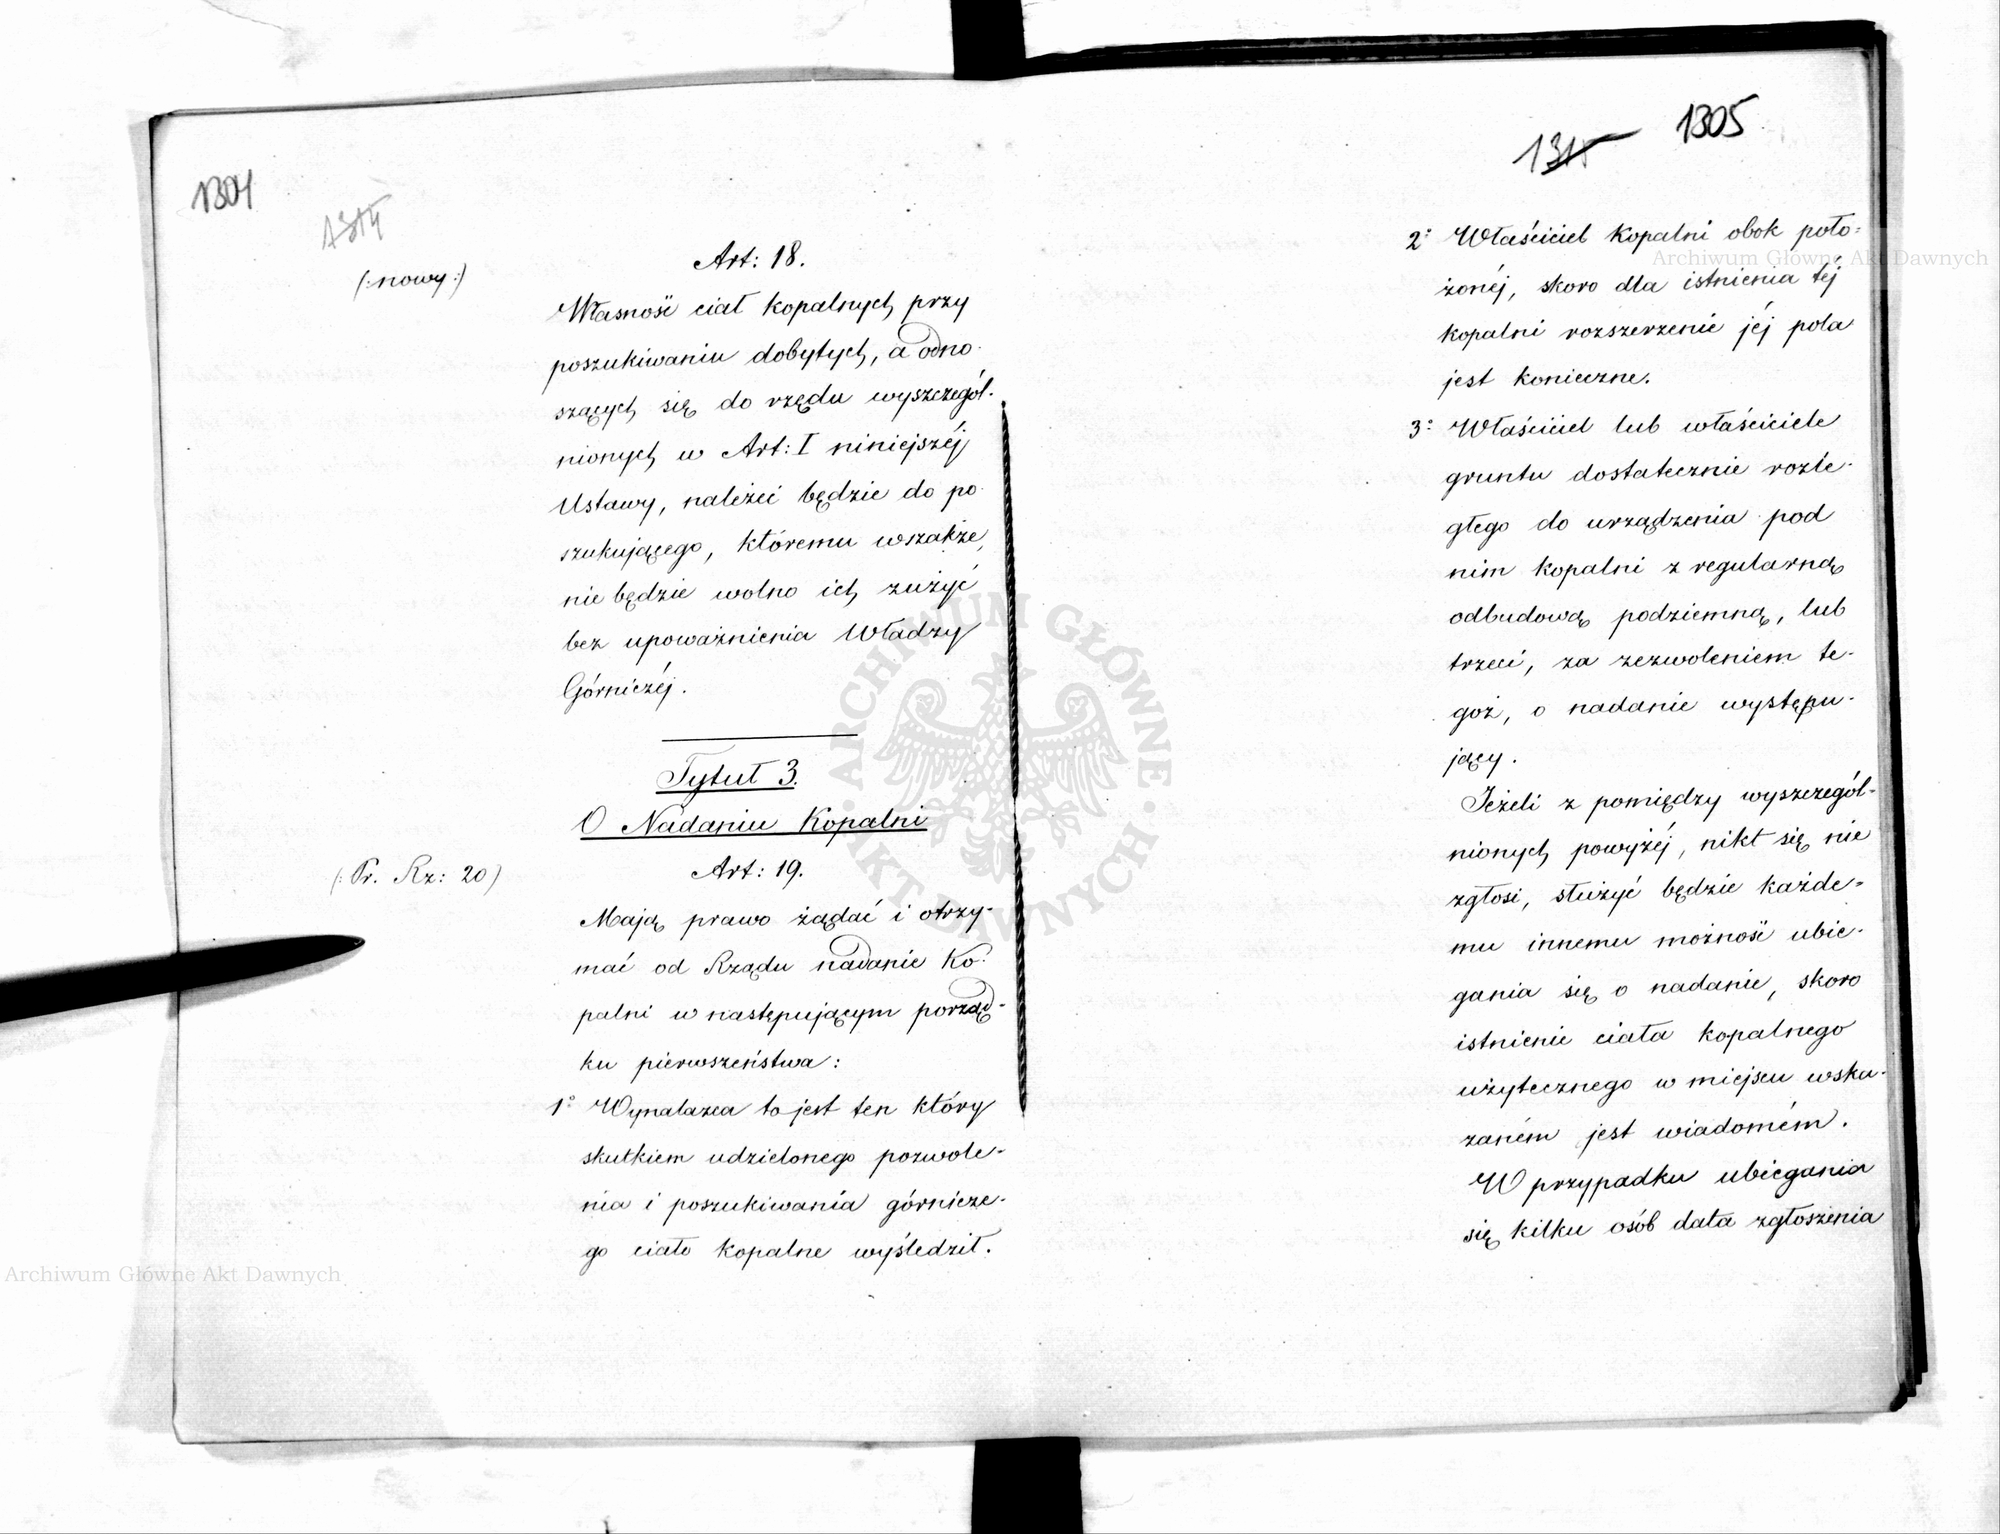 1304
1314
(: nowy :)
Art: 18.
Własność ciał kopalnych przy
poszukiwaniu dobytych, a odno-
szących się do rzędu wyszczegól-
nionych w Art: I niniejszéj
Ustawy, należéć będzie do po-
szukującego, któremu wszakże,
nie będzie wolno ich zużyć
bez upoważnienia Władzy
Górniczéj.
Tytuł 3.
O Nadaniu Kopalni
(: Pr. Rz: 20)
Art: 19.
Mają prawo żądać i otrzy-
mać od Rządu nadanie Ko-
palni w następującym porząd-
ku pierwszeństwa:
1° Wynalazca to jest ten który
skutkiem udzielonego pozwole-
nia i poszukiwania górnicze-
go ciało kopalne wyśledził.
1315
1305
2° Właściciel kopalni obok poło-
żonéj, skoro dla istnienia téj
kopalni rozszerzenie jéj pola
jest konieczne.
3° Właściciel lub właściciele
gruntu dostatecznie rozle-
głego do urządzenia pod
nim kopalni z regularną
odbudową podziemną, lub
trzeci, za zezwoleniem te-
goż, o nadanie występu-
jący.
Jeżeli z pomiędzy wyszczegól-
nionych powyżéj, nikt się nie
zgłosi, służyć będzie każde-
mu innemu możność ubie-
gania się o nadanie, skoro
istnienie ciała kopalnego
użytecznego w miejscu wska-
zaném jest wiadomém.
W przypadku ubiegania
się kilku osób data zgłoszenia
Archiwum Główne Akt Dawnych
Archiwum Główne Akt Dawnych
ARCHIWUM GŁÓWNE AKT DAWNYCH